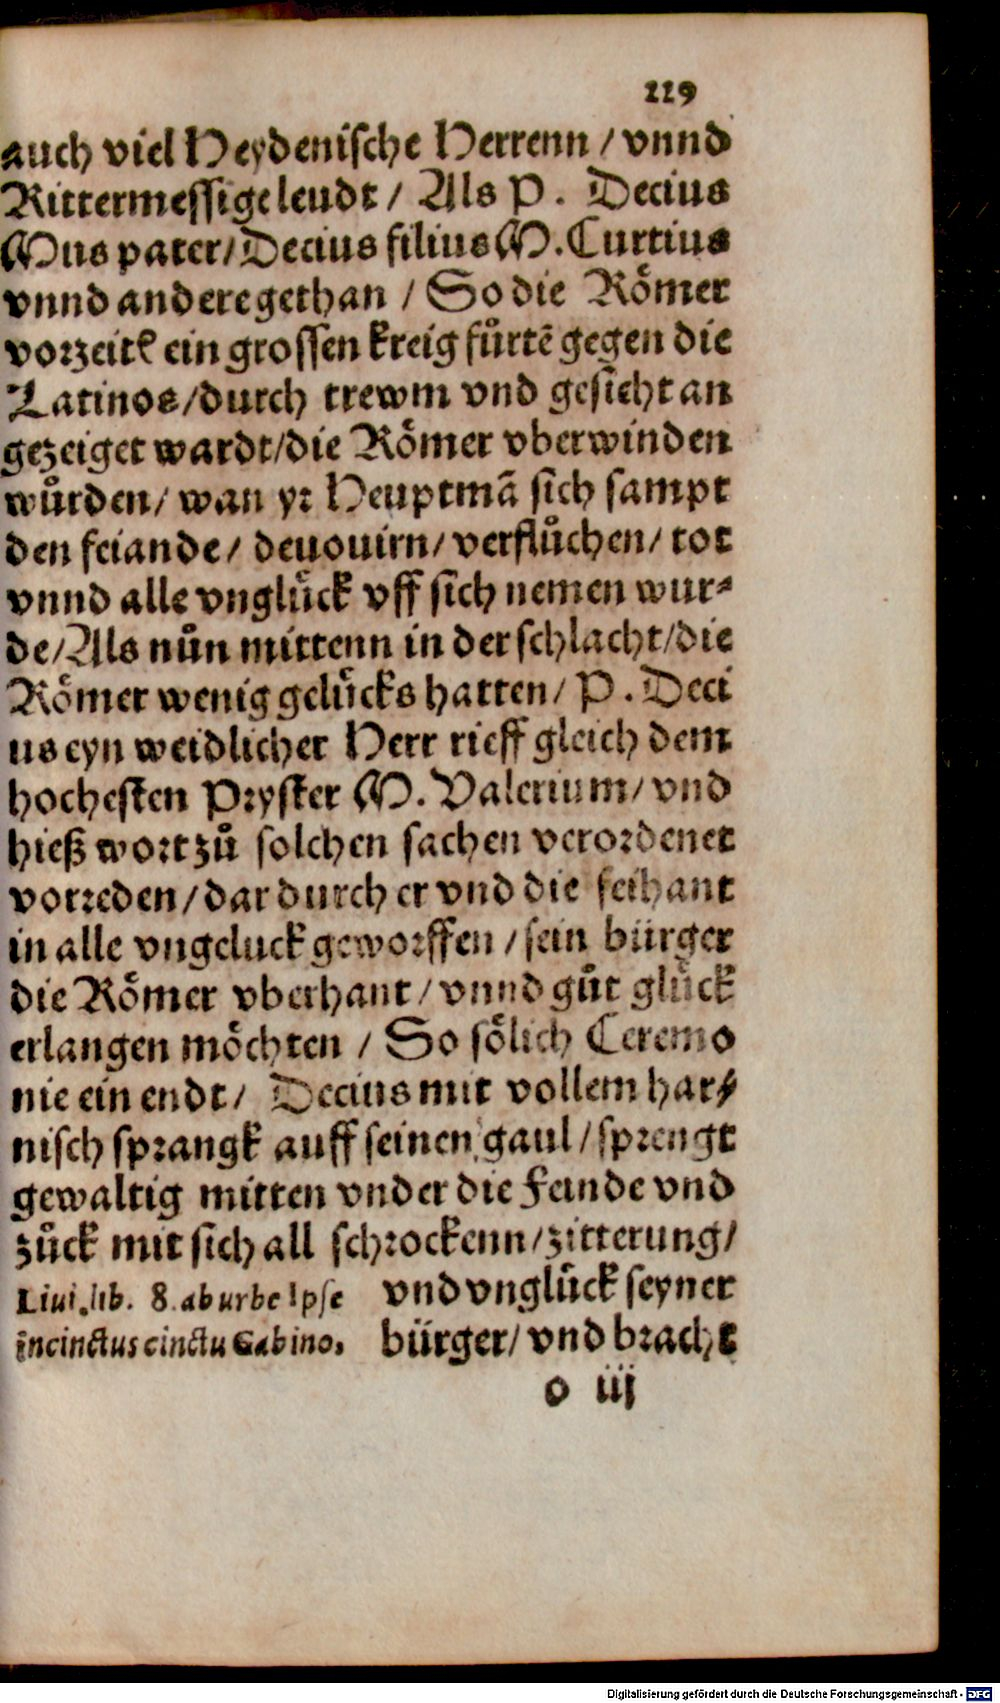 119
auch viel Heydenische Herrenn / vnnd
Rittermessige leudt / Als P. Decius
Mus pater / Decius filius M. Curtius
vnnd andere gethan / So die Roͤmer
vorzeitẽ ein grossen kreig fuͤrtẽ gegen die
Latinos / durch trewm vnd gesicht an
gezeiget wardt / die Roͤmer vberwinden
wuͤrden / wan yr Heuptmã sich sampt
den feiande / deuouirn / verfluͤchen / tot
vnnd alle vngluͤck vff sich nemen wur⸗
de / Als nuͦn mittenn in der schlacht / die
Roͤmer wenig geluͤcks hatten / P. Deci
us eyn weidlicher Herr rieff gleich dem
hochesten Pryster M. Valerium / vnd
hieß wort zuͦ solchen sachen verordenet
vorreden / dar durch er vnd die feihant
in alle vngeluck geworffen / sein bürger
die Roͤmer vberhant / vnnd guͦt gluͤck
erlangen moͤchten / So soͤlich Ceremo
nie ein endt / Decius mit vollem har⸗
nisch sprangk auff seinen gaul / sprengt
gewaltig mitten vnder die Feinde vnd
zuͤck mit sich all schrockenn / zitterung /
vnd vngluͤck seyner
bürger / vnd bracht
Liui. lib. 8. ab urbe Ipse
incinctus cinctu Gabino.
o iij
Digitalisierung gefördert durch die Deutsche Forschungsgemeinschaft - DFG